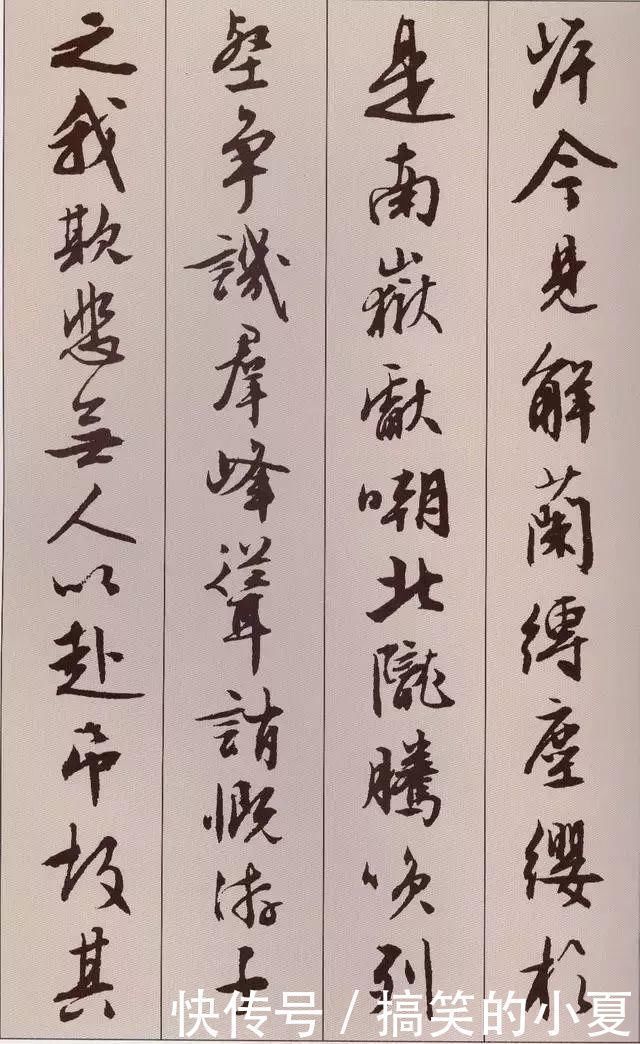 岸今見解蘭縛塵纓於
是南嶽獻嘲北隴騰笑列
壑争譏羣峰聳誚慨游子
之我欺悲無人以赴吊故其
快传号 / 搞笑的小夏